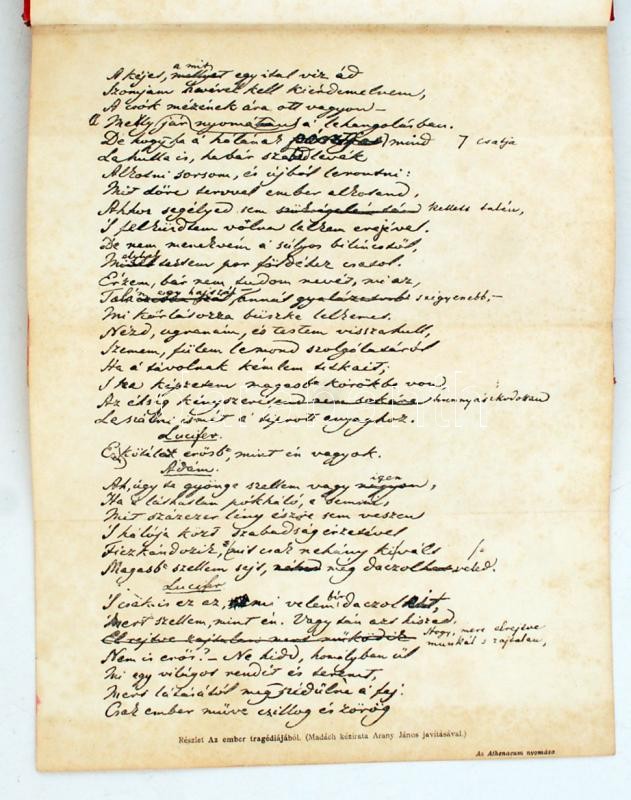 A kéjes, mellyet a mit egy ital víz ád
Szomjam hevével kell kiérdemelnem,
A csók mézének ára ott vagyon –
A Melly jár nyomában a lehangolásban.
De hogy ha a hálának mind csatja
Lehulla is, habár szabad levék
Alkotni sorsom, és újból lerontni:
Mit dőre tervvel ember alkotand,
Ahhoz segélyed sem kellett talán,
S felküzdtem volna lelkem erejével.
De nem menekvém a súlyos bilincstől,
Melly testem por földéhez csatol.
Érzem, bár nem tudom nevét, mi az,
Talán egy hajszál annál gyalázatosb szégyenebb, –
Mi korlátozza büszke lelkemet.
Nézd, ugranám, és testem visszahull,
Szemem, fülem lemond szolgálatáról
Ha a távolnak kémlem titkait;
S ha képzetem magasbb körökbe von,
Az éhség kényszerít hunnyászkodottan
Leszállni ismét a tiprott anyaghoz.
Lucifer.
E kötelék erősb, mint én vagyok.
Ádám.
Ah, úgy te gyönge szellem vagy igen,
Ha e láthatlan pókháló, e semmi,
Mit százezer lény észre sem veszen
S hálója közt szabadság érzetével
Ficzkándozik, s mit csak nehány kiváló
Magasb szellem sejt, még daczol veled.
Lucifer
S csak is ez az, mi velem bír daczolni,
Mert szellem, mint én. Vagy tán azt hiszed,
Elrejtve zajtalan nem működik
Hogy, mert elrejtve
munkál s zajtalan,
Nem is erős? – Ne hidd, homályban űl
Mi egy világot rendít és teremt,
Mert látásától megszédűlne a fej.
Csak ember műve csillog és zörög
Részlet Az ember tragédiájából. (Madách kézirata Arany János javításával.)
Az Athenaeum nyomása